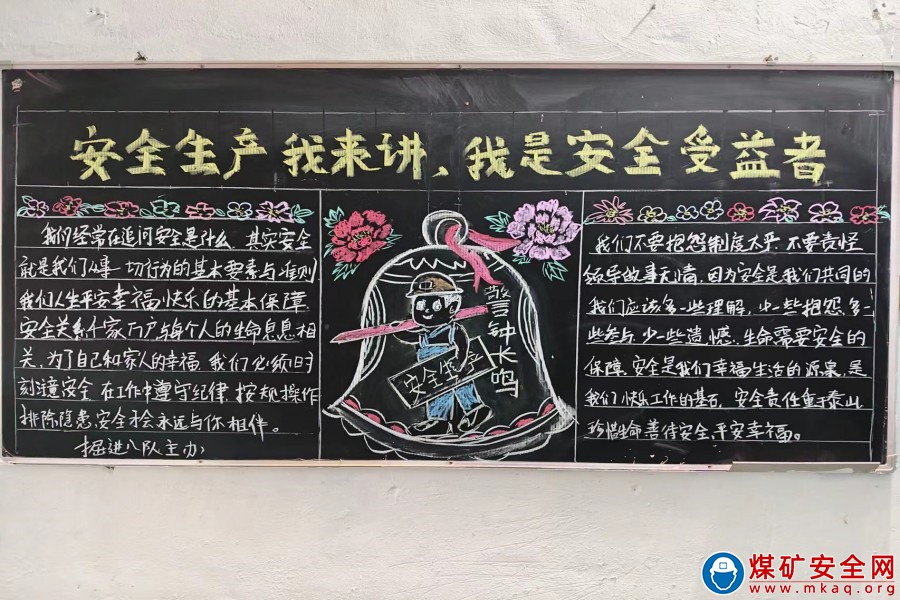 安全生产我来讲、我是安全受益者
我们经常在追问安全是什么,其实安全
就是我们从事一切行为的基本要素与准则
我们人生平安幸福快乐的基本保障.
安全关系千家万户与每个人的生命息息相
关,为了自己和家人的幸福,我们必须时
刻谨慎安全,在工作中遵守纪律,按规操作
排除隐患,安全才会永远与你相伴。
掘进八队主办
警钟长鸣
安全生产
我们不要抱怨制度太严,不要责怪
领导做事无情,因为安全是我们共同的
我们应该多一些理解,少一些抱怨,多一
些参与,少一些遗憾,生命需要安全的
保障,安全是我们幸福生活的源泉,是
我们快乐工作的基石,安全责任重于泰山
珍惜生命善待安全,平安幸福。
煤矿安全网
www.mkaq.org